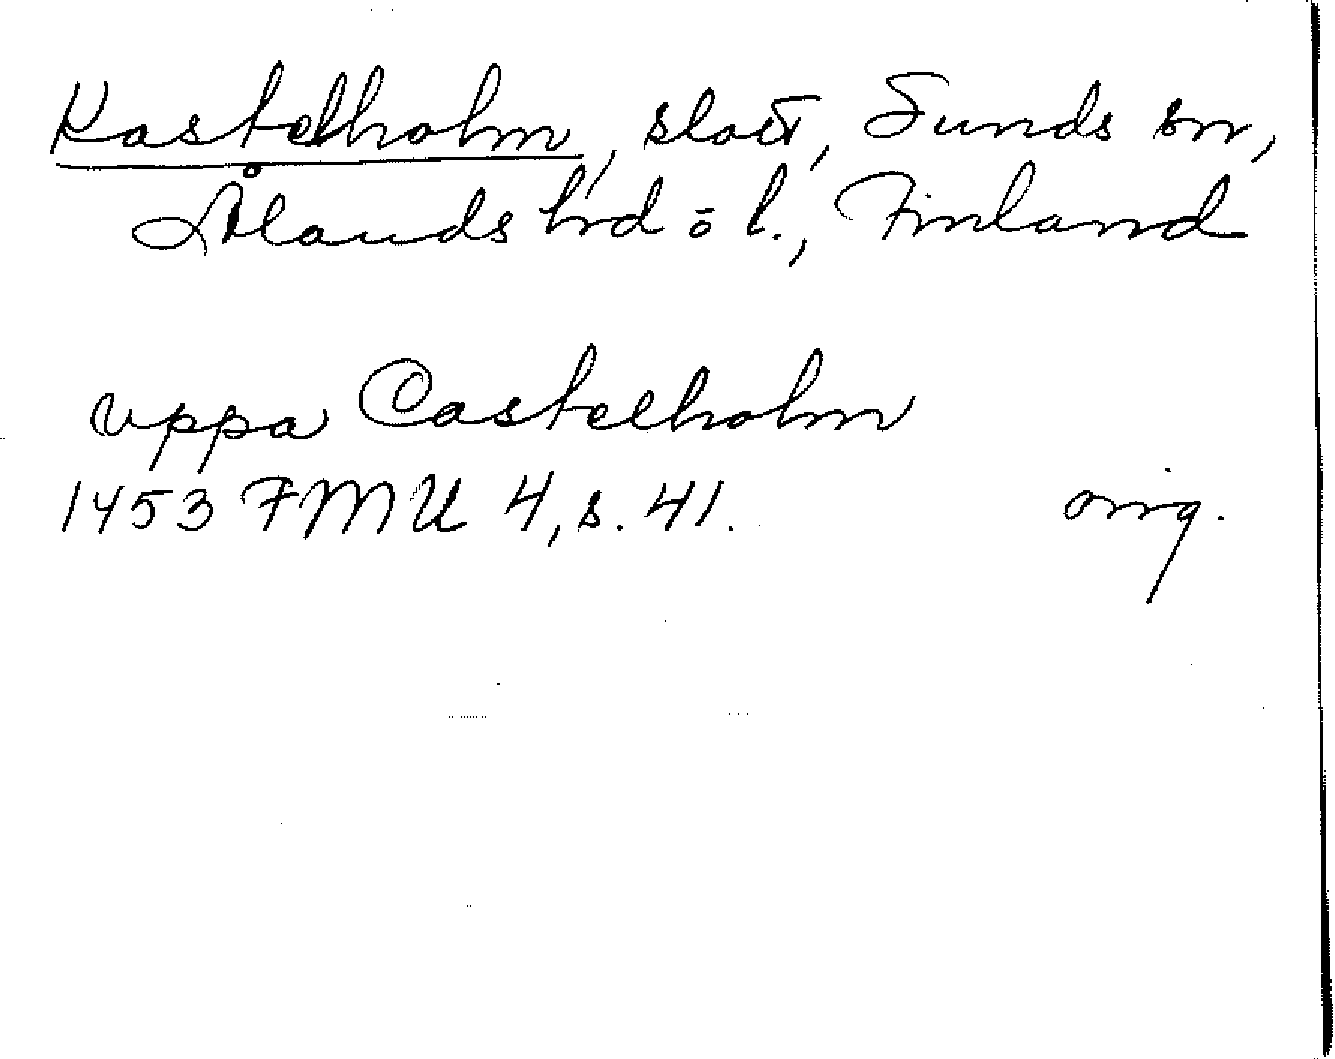 Kastelholm, slott, Sunds sn,
Ålands hrd o l., Finland
vppa Castelholm
1453 FMU 4, s. 41. orig.